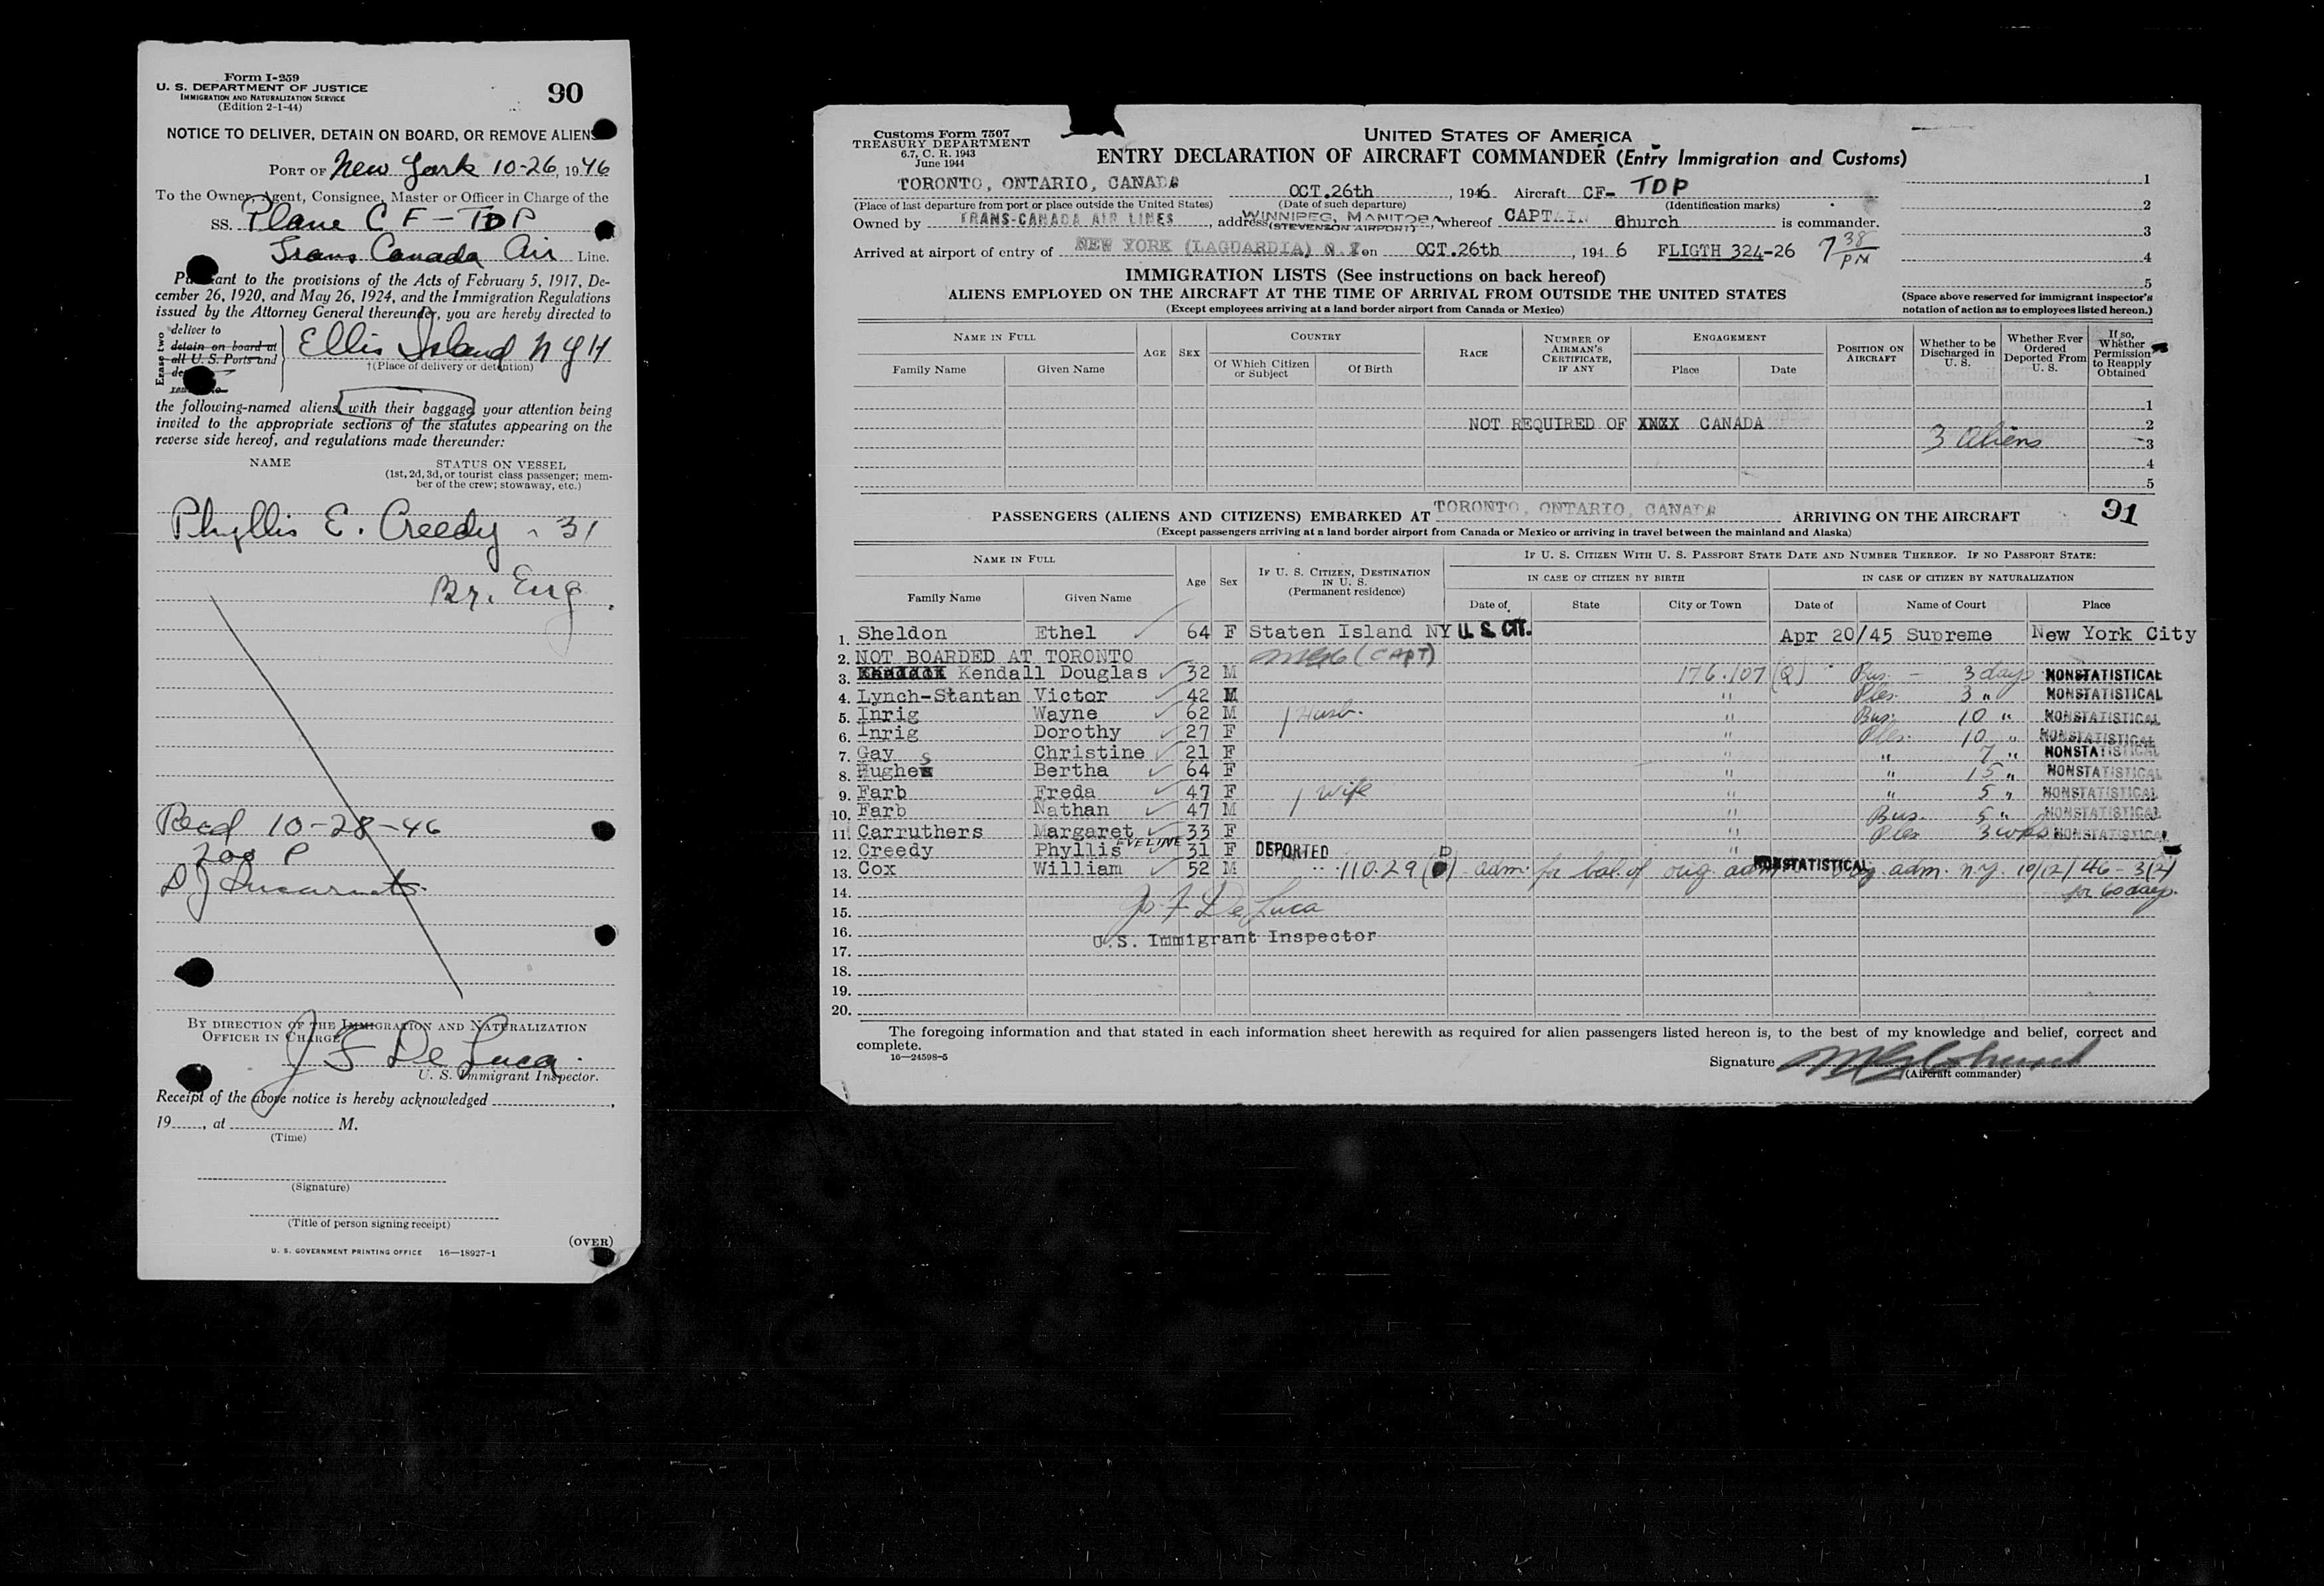 Form I-259
U. S. DEPARTMENT OF JUSTICE
IMMIGRATION AND NATURALIZATION SERVICE
(Edition 2-1-44)
90
NOTICE TO DELIVER, DETAIN ON BOARD, OR REMOVE ALIENS
PORT OF New York 10-26, 1946
To the Owner, Agent, Consignee, Master or Officer in Charge of the
SS. Plane CF-TDP
Trans Canada Air Line.
Pursuant to the provisions of the Acts of February 5, 1917, De-
cember 26, 1920, and May 26, 1924, and the Immigration Regulations
issued by the Attorney General thereunder, you are hereby directed to
Erase two
deliver to
detain on board at
all U. S. Ports and
Ellis Island N Y H
†(Place of delivery or detention)
the following-named aliens with their baggage, your attention being
invited to the appropriate sections of the statutes appearing on the
reverse side hereof, and regulations made thereunder:
NAME STATUS ON VESSEL
(1st, 2d, 3d, or tourist class passenger; mem-
ber of the crew; stowaway, etc.)
Phyllis E. Creedy - 31
Br. Eng.
Recd 10-28-46
200 P
BY DIRECTION OF THE IMMIGRATION AND NATURALIZATION
OFFICER IN CHARGE
J F De Luca
U. S. Immigrant Inspector.
Receipt of the above notice is hereby acknowledged ,
19 , at M.
(Time)
(Signature)
(Title of person signing receipt)
(OVER)
U. S. GOVERNMENT PRINTING OFFICE 16—18927-1
Customs Form 7507
TREASURY DEPARTMENT
6.7, C. R. 1943
June 1944
UNITED STATES OF AMERICA
ENTRY DECLARATION OF AIRCRAFT COMMANDER (Entry Immigration and Customs)
TORONTO, ONTARIO, CANADA OCT.26th , 1946 Aircraft CF- TDP
(Place of last departure from port or place outside the United States) (Date of such departure) (Identification marks)
Owned by TRANS-CANADA AIR LINES , address WINNIPEG, MANITOBA (STEVENSON AIRPORT), whereof CAPTAIN Church is commander.
Arrived at airport of entry of NEW YORK (LAGUARDIA) N.Y on OCT.26th , 194 6 FLIGTH 324-26 7 38 PM
1
2
3
4
5
(Space above reserved for immigrant inspector's
notation of action as to employees listed hereon.)
IMMIGRATION LISTS (See instructions on back hereof)
ALIENS EMPLOYED ON THE AIRCRAFT AT THE TIME OF ARRIVAL FROM OUTSIDE THE UNITED STATES
(Except employees arriving at a land border airport from Canada or Mexico)
NAME IN FULL
Family Name Given Name
AGE SEX
COUNTRY
Of Which Citizen or Subject Of Birth
RACE
NUMBER OF AIRMAN'S CERTIFICATE, IF ANY
ENGAGEMENT
Place Date
POSITION ON AIRCRAFT
Whether to be Discharged in U. S.
Whether Ever Ordered Deported From U. S.
If so, Whether Permission to Reapply Obtained
1
NOT REQUIRED OF XNXX CANADA 2
3 Aliens 3
4
5
PASSENGERS (ALIENS AND CITIZENS) EMBARKED AT TORONTO, ONTARIO, CANADA ARRIVING ON THE AIRCRAFT 91
(Except passengers arriving at a land border airport from Canada or Mexico or arriving in travel between the mainland and Alaska)
NAME IN FULL
Family Name Given Name
Age Sex
IF U. S. CITIZEN, DESTINATION IN U. S. (Permanent residence)
IF U. S. CITIZEN WITH U. S. PASSPORT STATE DATE AND NUMBER THEREOF. IF NO PASSPORT STATE:
IN CASE OF CITIZEN BY BIRTH IN CASE OF CITIZEN BY NATURALIZATION
Date of State City or Town Date of Name of Court Place
1. Sheldon Ethel 64 F Staten Island NY U.S. CIT. Apr 20/45 Supreme New York City
2. NOT BOARDED AT TORONTO (CAPT)
3. Kendall Douglas 32 M 176.107 (Q) Bus. - 3 days NONSTATISTICAL
4. Lynch-Stantan Victor 42 M " Ples. 3 " NONSTATISTICAL
5. Inrig Wayne 62 M Husb. " Bus. 10 " NONSTATISTICAL
6. Inrig Dorothy 27 F " Ples. 10 " NONSTATISTICAL
7. Gay Christine 21 F " " 7 " NONSTATISTICAL
8. Hughes Bertha 64 F " " 15 " NONSTATISTICAL
9. Farb Freda 47 F wife " " 5 " NONSTATISTICAL
10. Farb Nathan 47 M " Bus. 5 " NONSTATISTICAL
11. Carruthers Margaret 33 F " Ples 3 wks NONSTATISTICAL
12. Creedy Phyllis EVELINE 31 F DEPORTED "
13. Cox William 52 M 110.29 (D) adm. for bal. of orig. adm NONSTATISTICAL adm. N.Y. 10/12/46 - 3(2)
for 60 days.
14.
15. J. F. De Luca
16. U.S. Immigrant Inspector
17.
18.
19.
20.
The foregoing information and that stated in each information sheet herewith as required for alien passengers listed hereon is, to the best of my knowledge and belief, correct and
complete.
16—24598-5
Signature
(Aircraft commander)